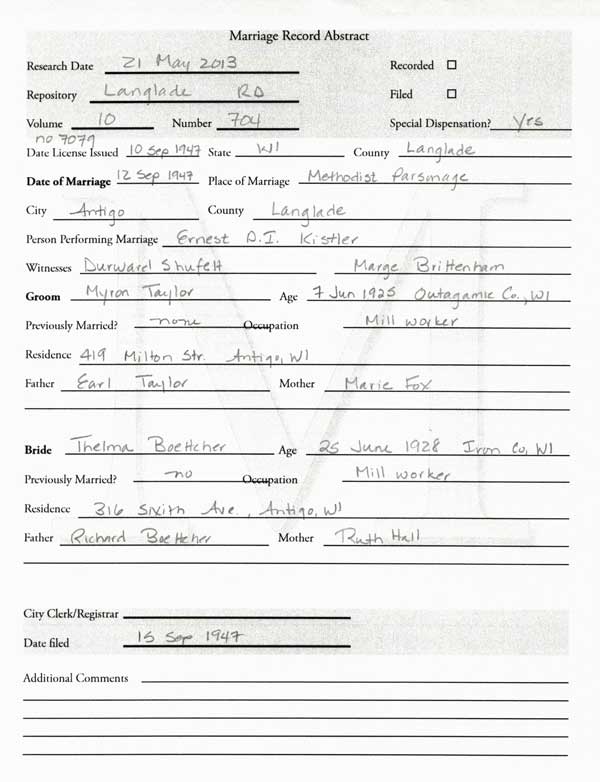 Marriage Record Abstract
Research Date 21 May 2013 Recorded
Repository Langlade RD Filed
Volume 10 Number 704 Special Dispensation? Yes
no 7079
Date License Issued 10 Sep 1947 State WI County Langlade
Date of Marriage 12 Sep 1947 Place of Marriage Methodist Parsonage
City Antigo County Langlade
Person Performing Marriage Ernest D.I. Kistler
Witnesses Durward Shufelt Marge Brittenham
Groom Myron Taylor Age 7 Jun 1925 Outagamie Co., WI
Previously Married? none Occupation Mill worker
Residence 419 Milton Str. Antigo, WI
Father Earl Taylor Mother Marie Fox
Bride Thelma Boettcher Age 25 June 1928 Iron Co, WI
Previously Married? no Occupation Mill worker
Residence 316 Sixith Ave., Antigo, WI
Father Richard Boettcher Mother Ruth Hall
City Clerk/Registrar
Date filed 15 Sep 1947
Additional Comments
M